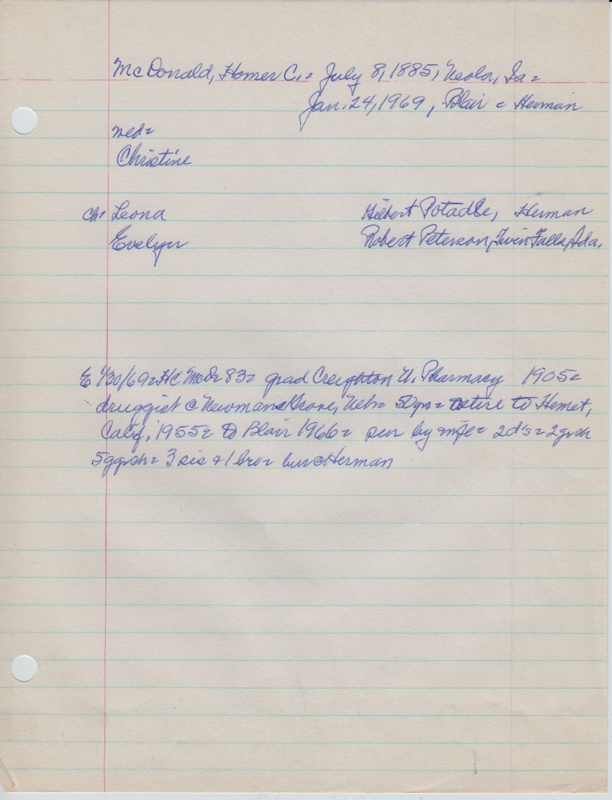 McDonald, Homer C. = July 8, 1885, Neola, Ia =
Jan. 24, 1969, Blair = Herman
med =
Christine
Ch: Leona Hilbert Potadle, Herman
Evelyn Robert Peterson, Twin Falls, Ida.
E 1/30/69 = HC McD = 83 = grad Creighton U. Pharmacy 1905 =
druggist @ Newman Grove, Neb = 50 yrs = retire to Hemet,
Calif, 1955 = to Blair 1966 = sur by wife = 2 d's = 2 grch
5 ggrch = 3 sis + 1 bro = bur @ Herman